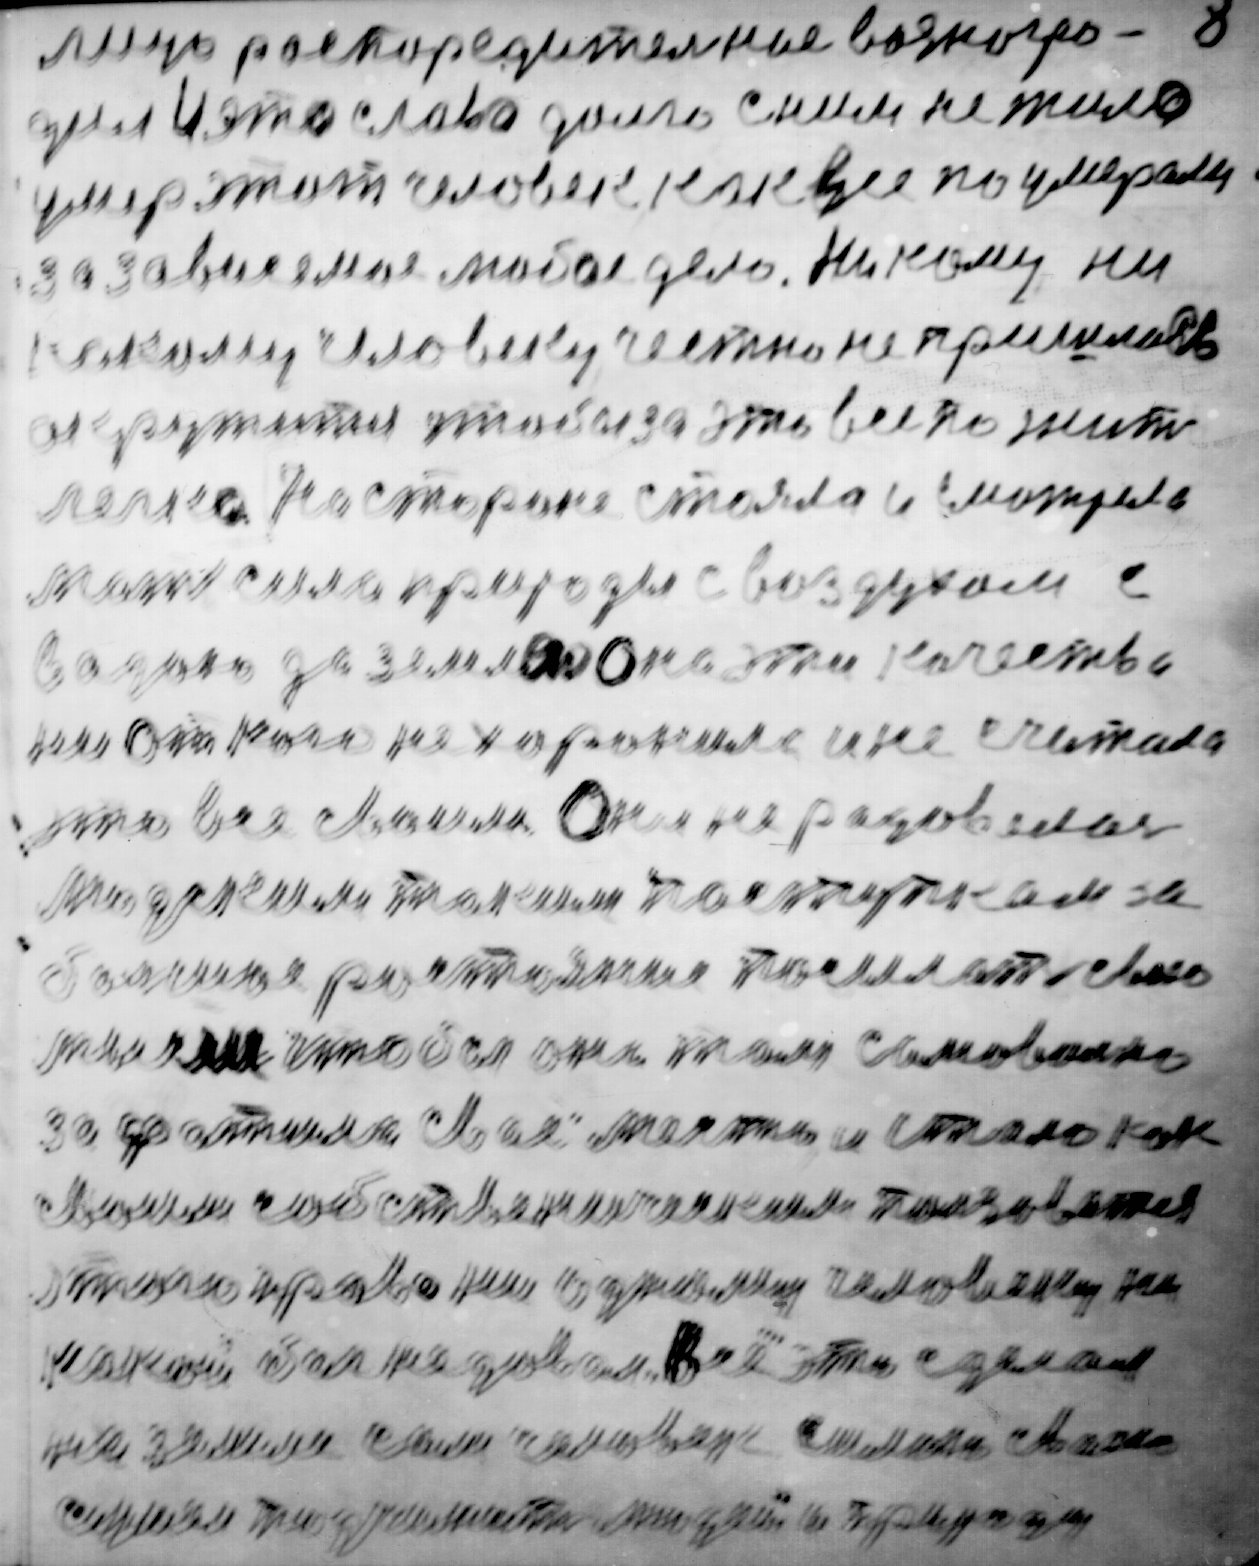 8
лиць роспоредителное вознагро-
дил И эта слава долго с ним не жила
умир этот человек как все по умерали
за зависемое любое дело. Никому ни
какому человеку честно не пришлось
окружится чтобы за это все пожить
легко. На стороне стояла и смотрела
мать сила природы с воздухом с
водою да землею Она эти качества
ни от кого не хоронила и не считала
это все своим. Она не радовалась
людским таким поступкам за
большое ростояние посилать свою
что бы она там самовольно
захотила свое место и стало как
своим собственическим ползоватся
этого право ни одному человеку не
какой бог не давал. Всё это сделал
на земли сам человек силою своею
сумел подчинить людей и природу